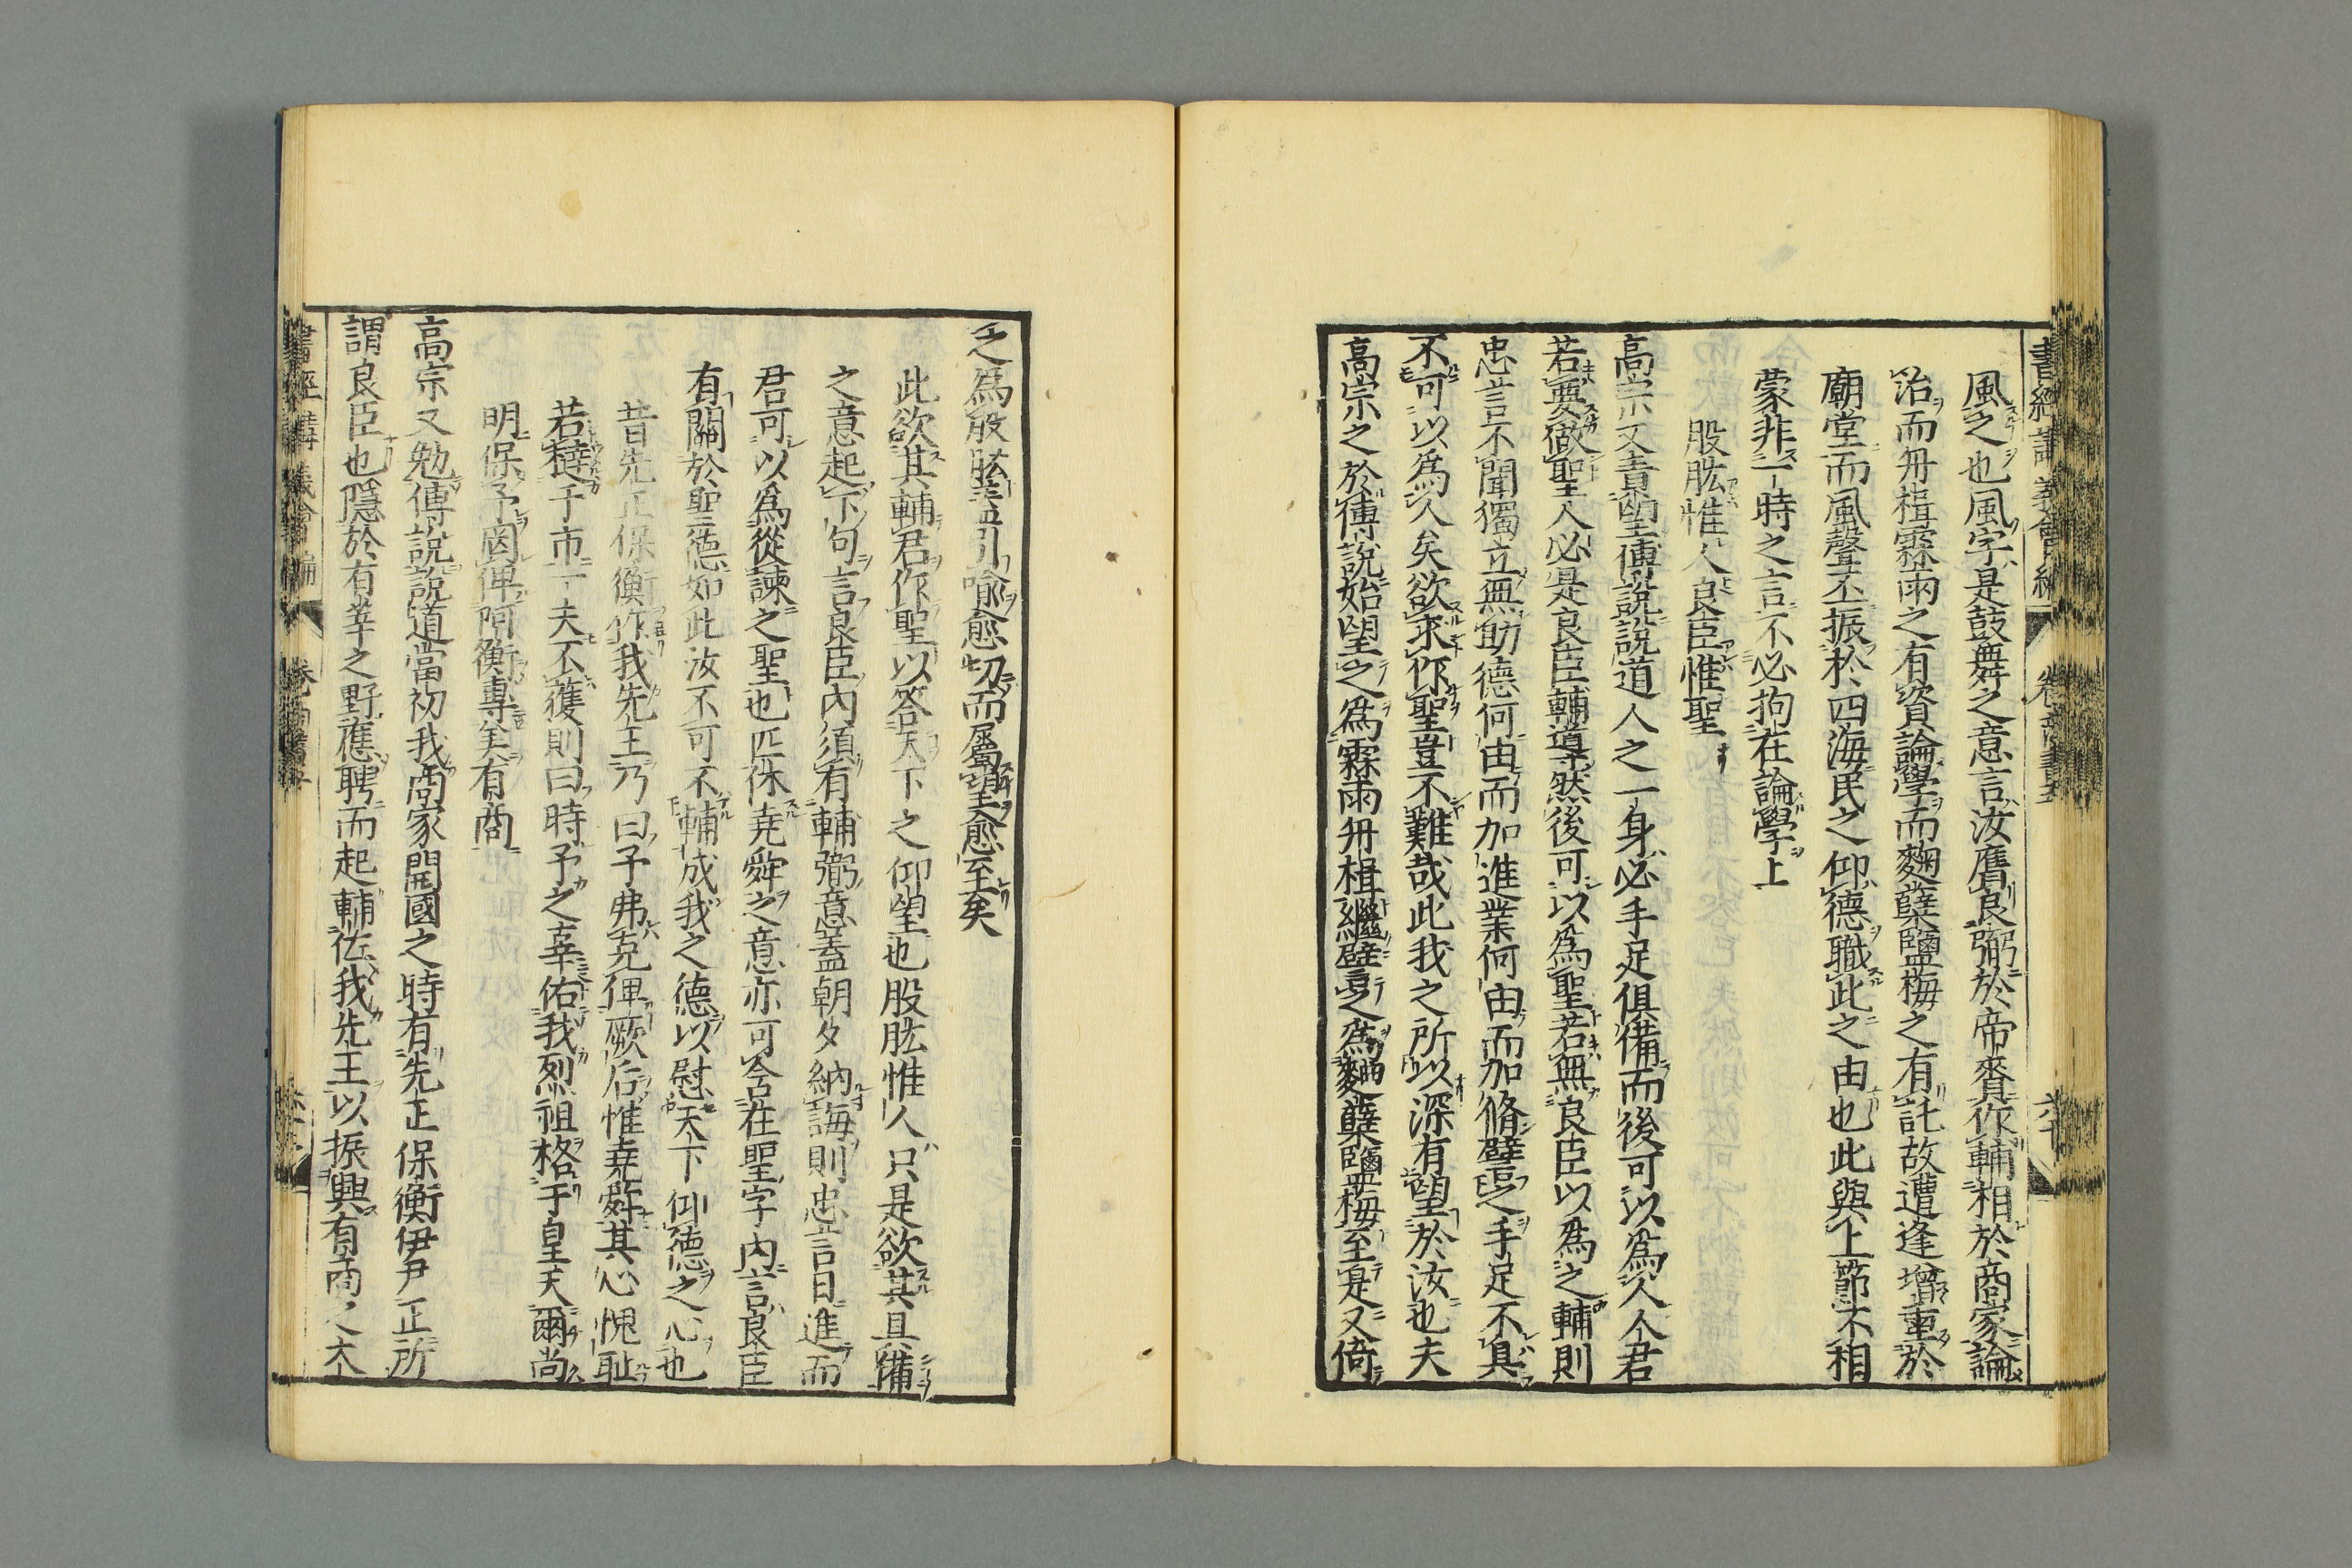 書經講義會編
風之也風字是鼓舞之意言汝膺良弼於帝賚作輔相於商家論
治而舟楫霖雨之有資論學而麴糵鹽梅之有託故遭逢增重於
廟堂而風聲丕振於四海民之仰德職此之由也此與上節不相
蒙非一時之言不必拘在論學上
股肱惟人良臣惟聖
高宗又責望傅說說道人之一身必手足俱備而後可以爲人人君
若要做聖人必是良臣輔導然後可以爲聖若無良臣以爲之輔則
忠言不聞獨立無助德何由而加進業何由而加脩譬之手足不具
不可以爲人矣欲求作聖豈不難哉此我之所以深有望於汝也夫
高宗之於傅說始望之爲霖雨舟楫繼譬之爲麴糵鹽梅至是又倚
之爲股肱蓋引喻愈切而屬望愈至矣
此欲其輔君作聖以答天下之仰望也股肱惟人只是欲其具備
之意起下句言良臣內須有輔弼意蓋朝夕納誨則忠言日進而
君可以爲從諫之聖也匹休堯舜之意亦可含在聖字內言良臣
有關於聖德如此汝不可不輔成我之德以慰天下仰德之心也
昔先正保衡作我先王乃曰予弗克俾厥后惟堯舜其心愧恥
若撻于市一夫不獲則曰時予之辜佑我烈祖格于皇天爾尚
明保予罔俾阿衡專美有商
高宗又勉傅說說道當初我商家開國之時有先正保衡伊尹正所
謂良臣也隱於有莘之野應聘而起輔佐我先王以振興有商之大
書經講義會編